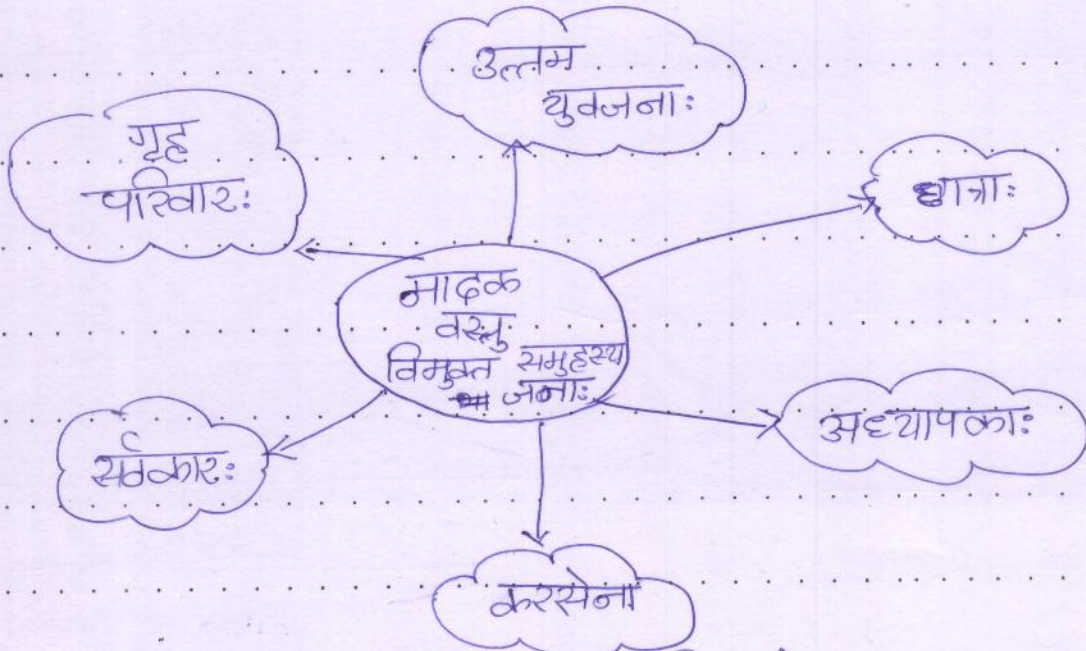 उत्तम
युवजनाः
गृह
परिवारः
छात्राः
मादक
वस्तु
विमुक्त समुहस्य
जनाः
अध्यापकाः
सर्वकारः
करसेना